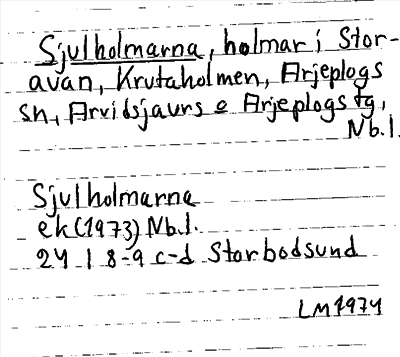 Sjulholmarna, holmar i Stor-
avan, Krutaholmen, Arjeplogs
sn, Arvidsjaurs o Arjeplogs tg,
Nb.l.
Sjulholmarna
ek (1973) Nb.l.
24 I 8-9 c-d Storbodsund
LM 1974